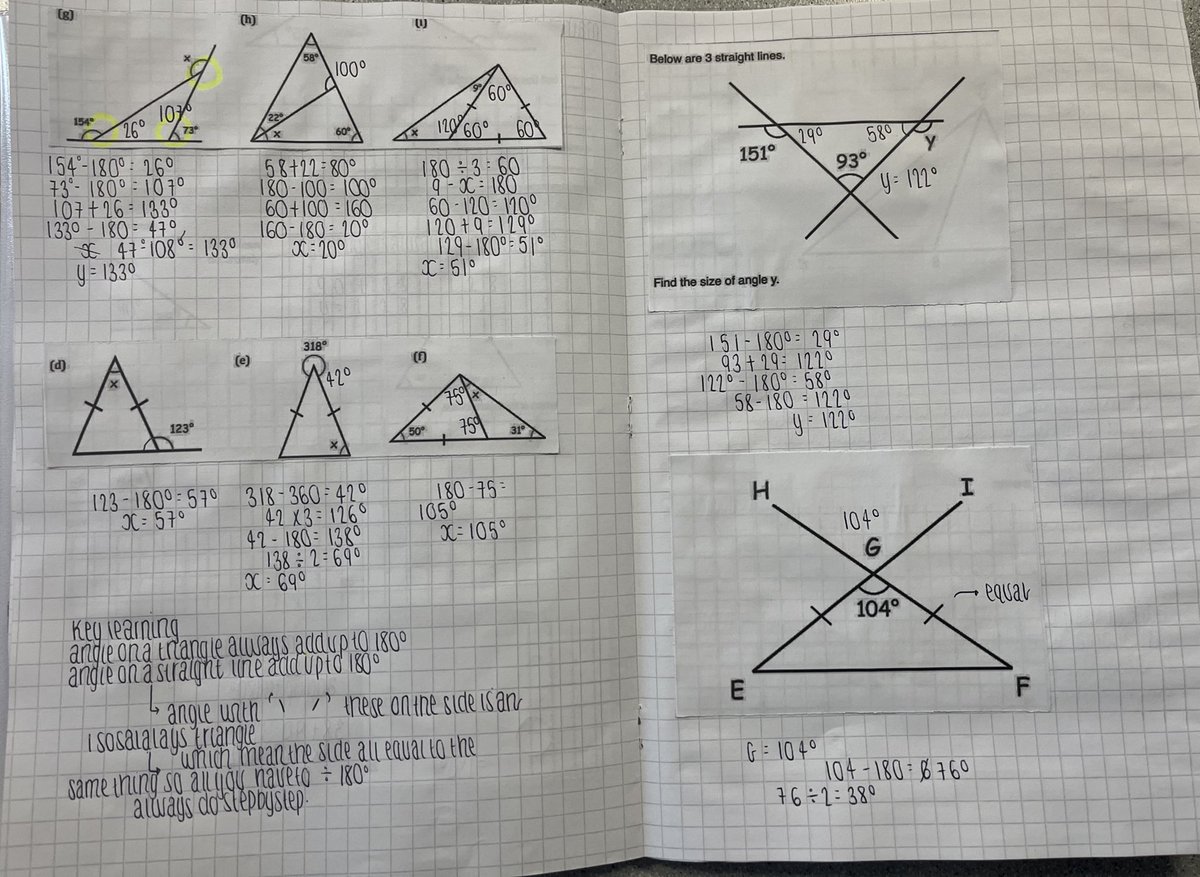 (g)
x
154°
26°
107°
73°
154°-180°=26°
73°-180°=107°
107+26=133°
133°-180=47°
47°-108°=133°
y=133°
(h)
58°
100°
22°
x
60°
58+22=80°
180-100=100°
60+100=160
160-180=20°
x=20°
(i)
9°
60°
x
120°
60°
60°
180÷3=60
9-x=180
60-120=120°
120+9=129°
129-180°=51°
x=51°
(d)
x
123°
123-180°=57°
x=57°
(e)
318°
42°
x
318-360=42°
42x3=126°
42-180=138°
138÷2=69°
x=69°
(f)
75°
x
50°
75°
31°
180-75=
105°
x=105°
Key learning
angle on a triangle always add up to 180°
angle on a straight line add up to 180°
↳ angle with '\ /' these on the side is an
isosalalays triangle
↳ which mean the side all equal to the
same thing so all you have to ÷ 180°
always do step by step.
Below are 3 straight lines.
151°
29°
58°
93°
y
y=122°
Find the size of angle y.
151-180°=29°
93+29=122°
122°-180°=58°
58-180=122°
y=122°
H
I
104°
G
104°
→ equal
E
F
G=104°
104-180=76°
76÷2=38°